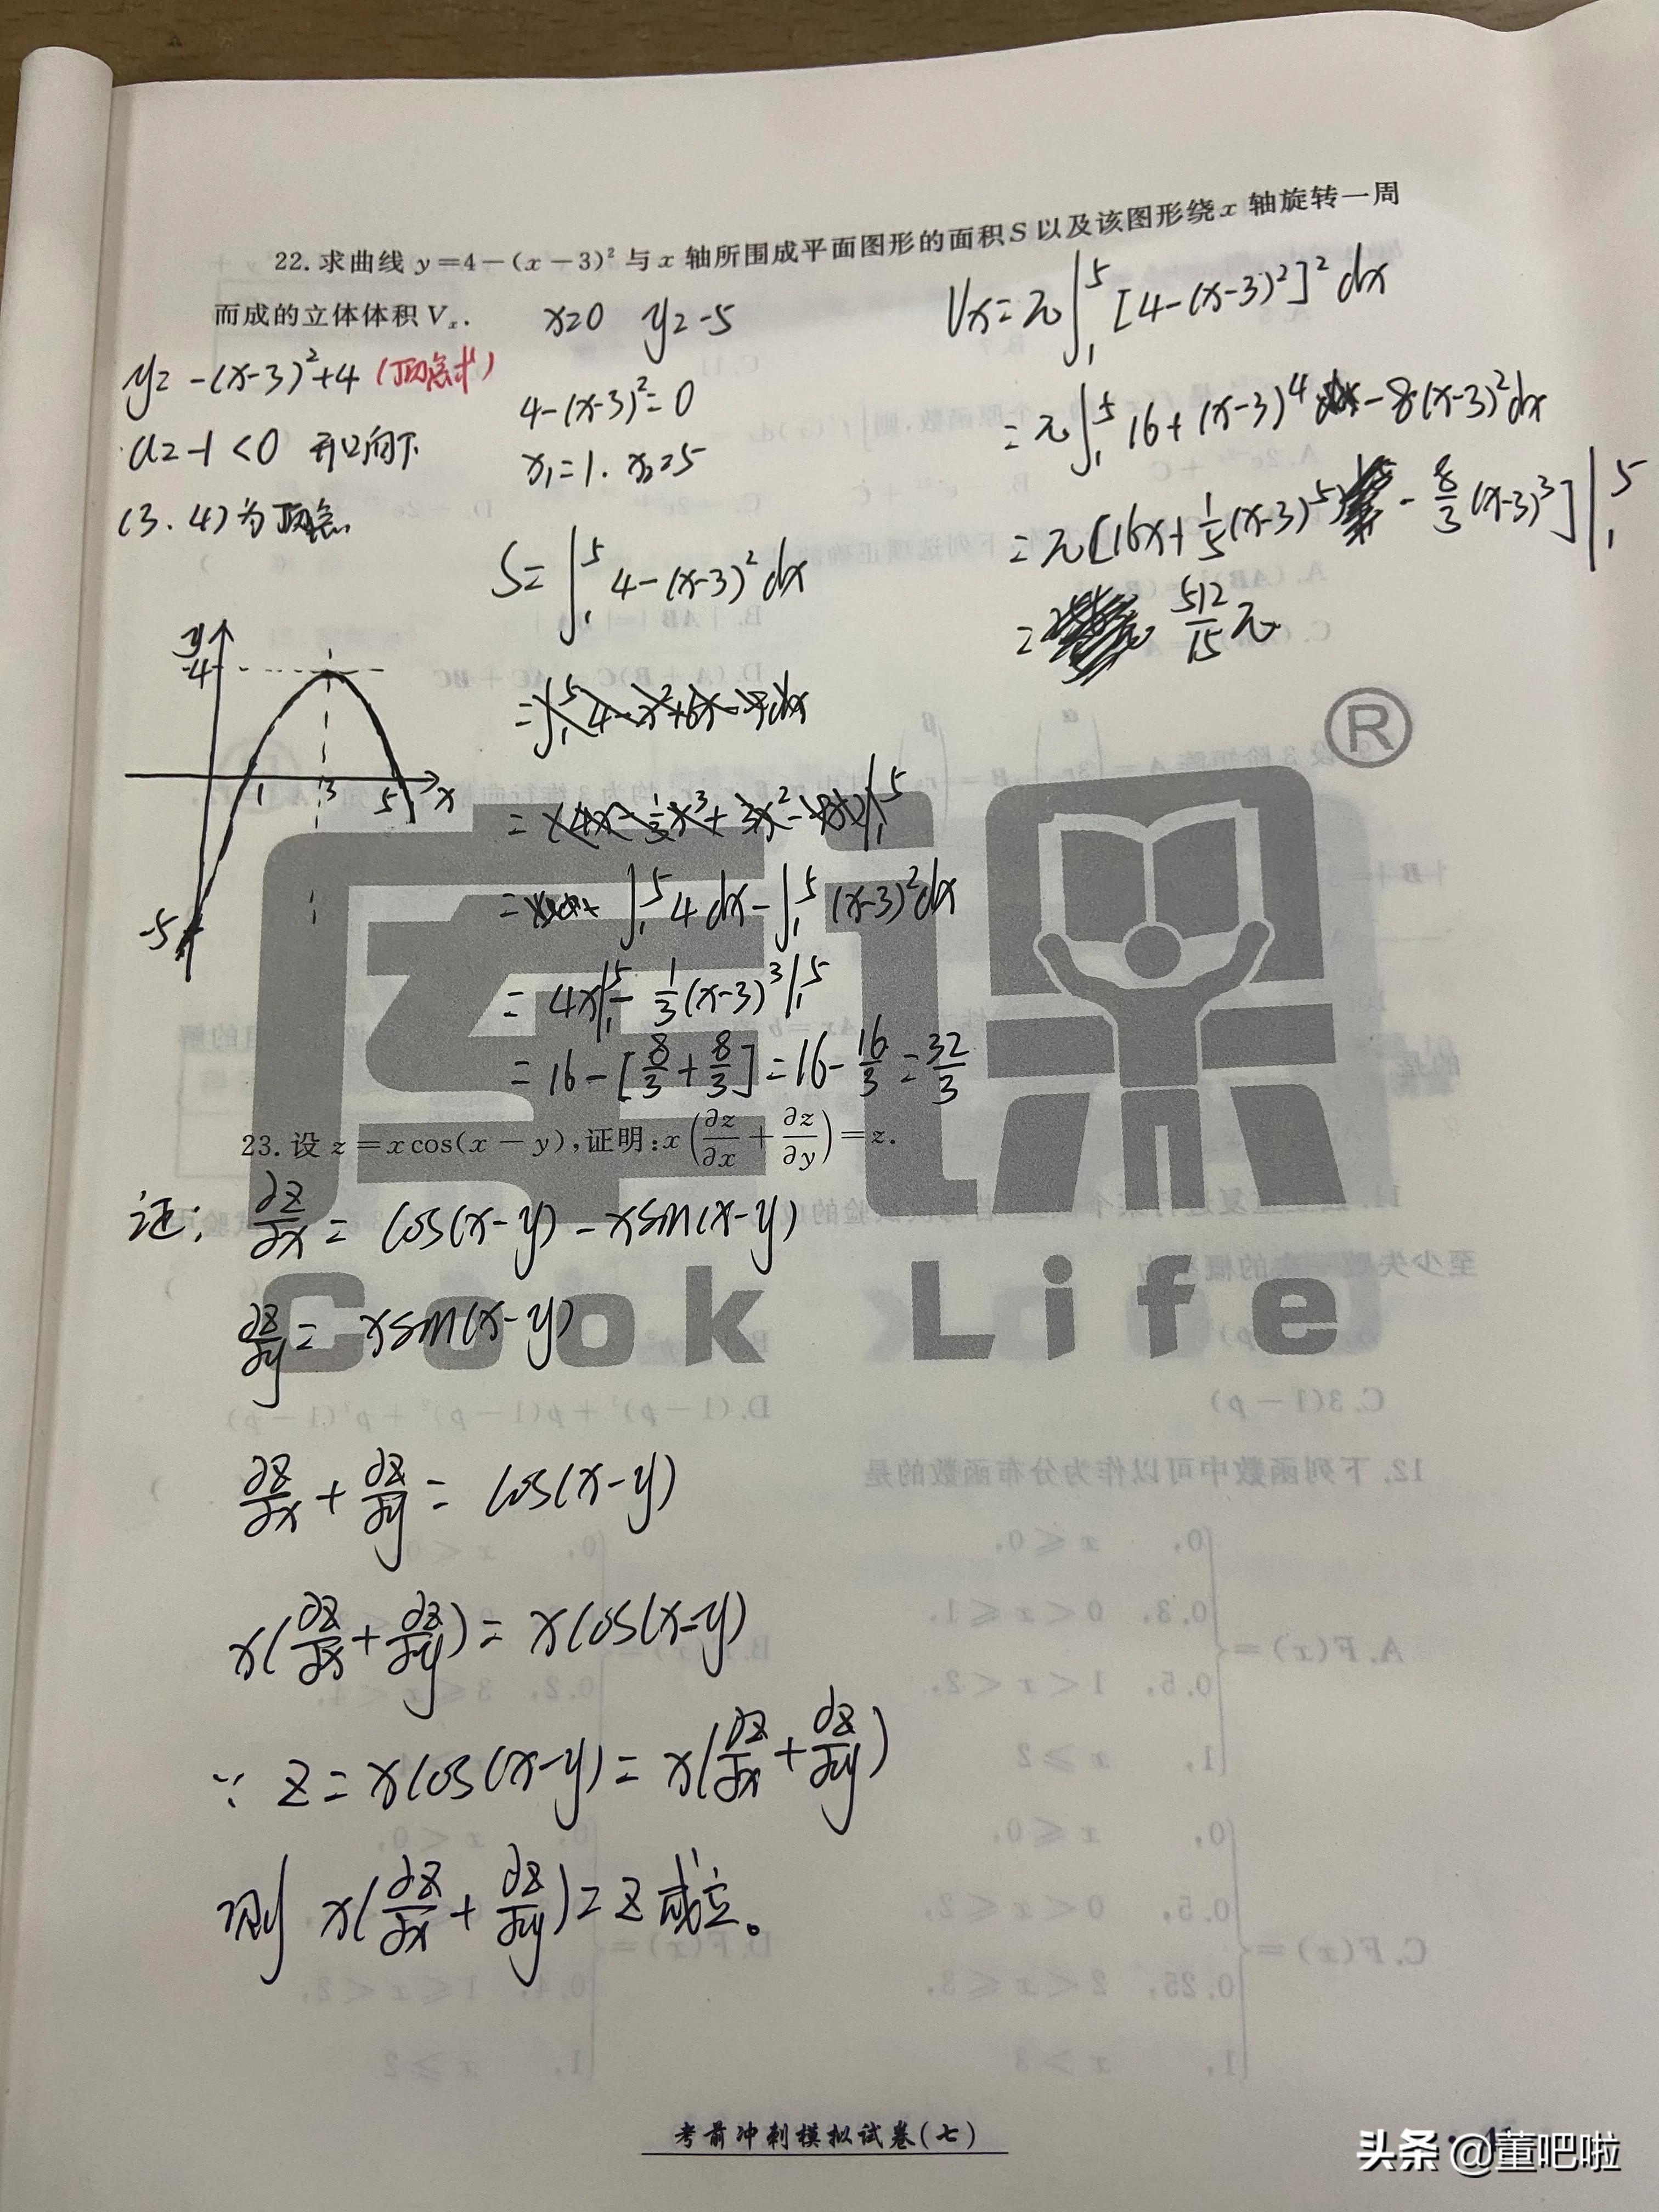 22. 求曲线 y=4-(x-3)² 与 x 轴所围成平面图形的面积 S 以及该图形绕 x 轴旋转一周
而成的立体体积 Vₓ.
y=-(x-3)²+4 (顶点式)
a=-1<0 开口向下
(3.4)为顶点
y
4
1
3
5
x
-5
x=0 y=-5
4-(x-3)²=0
x₁=1. x₂=5
S=∫₁⁵ 4-(x-3)²dx
=∫₁⁵ 4-x²+6x-9dx
=∫₁⁵ 4dx-∫₁⁵ (x-3)²dx
=4x|₁⁵-1/3(x-3)³|₁⁵
=16-[8/3+8/3]=16-16/3=32/3
Vx=π∫₁⁵ [4-(x-3)²]²dx
=π∫₁⁵ 16+(x-3)⁴-8(x-3)²dx
=π[16x+1/5(x-3)⁵-8/3(x-3)³]|₁⁵
=512/15π
23. 设 z=xcos(x-y),证明:x(∂z/∂x+∂z/∂y)=z.
证: ∂z/∂x=cos(x-y)-xsin(x-y)
∂z/∂y=xsin(x-y)
∂z/∂x+∂z/∂y=cos(x-y)
x(∂z/∂x+∂z/∂y)=xcos(x-y)
∵ z=xcos(x-y)=x(∂z/∂x+∂z/∂y)
则 x(∂z/∂x+∂z/∂y)=z成立。
库课
®
Cook Life
考前冲刺模拟试卷(七)
头条 @董吧啦